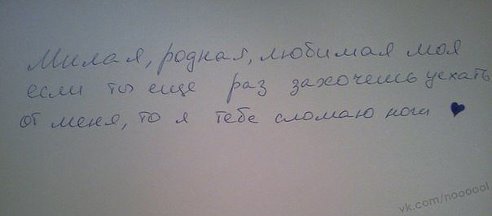 Милая, родная, любимая моя
если ты еще раз захочешь уехать
от меня, то я тебе сломаю ноги ♥
vk.com/noooool